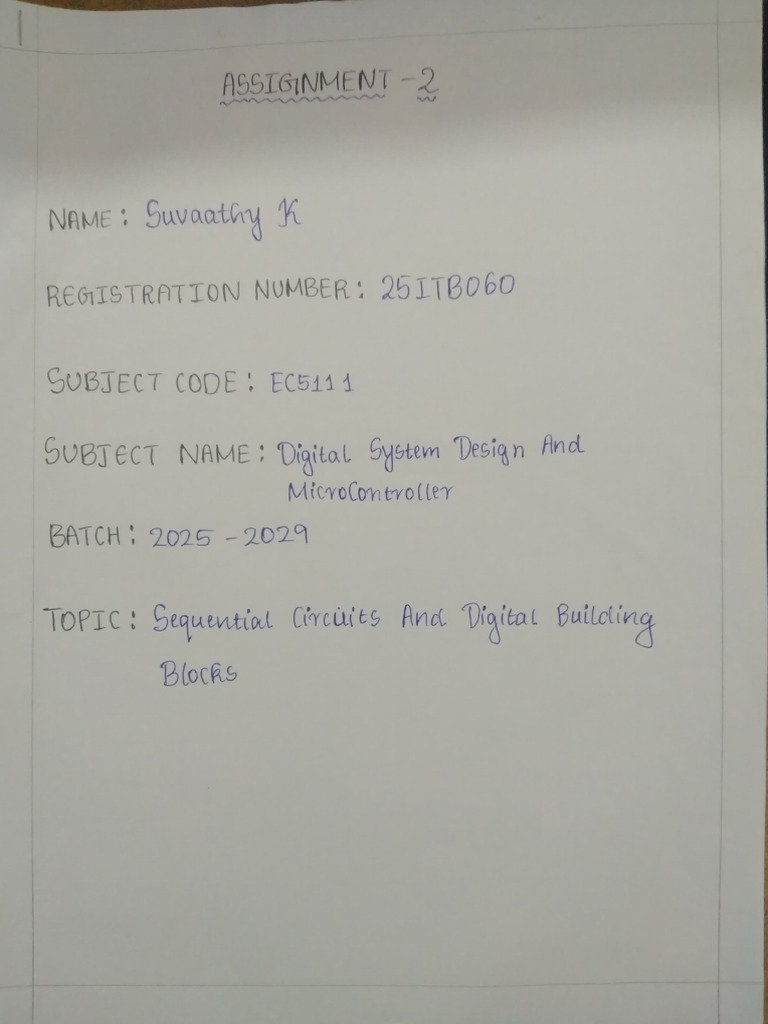 ASSIGNMENT - 2
NAME: Suvaathy K
REGISTRATION NUMBER: 25ITB060
SUBJECT CODE: EC5111
SUBJECT NAME: Digital System Design And
MicroController
BATCH: 2025 - 2029
TOPIC: Sequential Circuits And Digital Building
Blocks